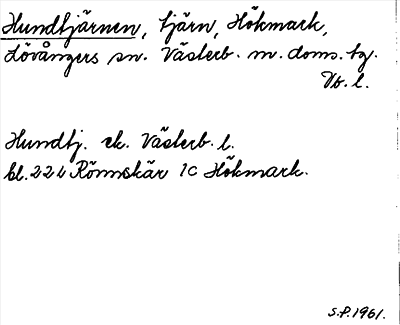 Hundtjärnen, tjärn, Hökmark,
Lövångers sn. Västerb. m. doms. tg.
Vb. l.
Hundtj. ek. Västerb. l.
bl. 224 Rönnskär 1c Hökmark.
S.P. 1961.